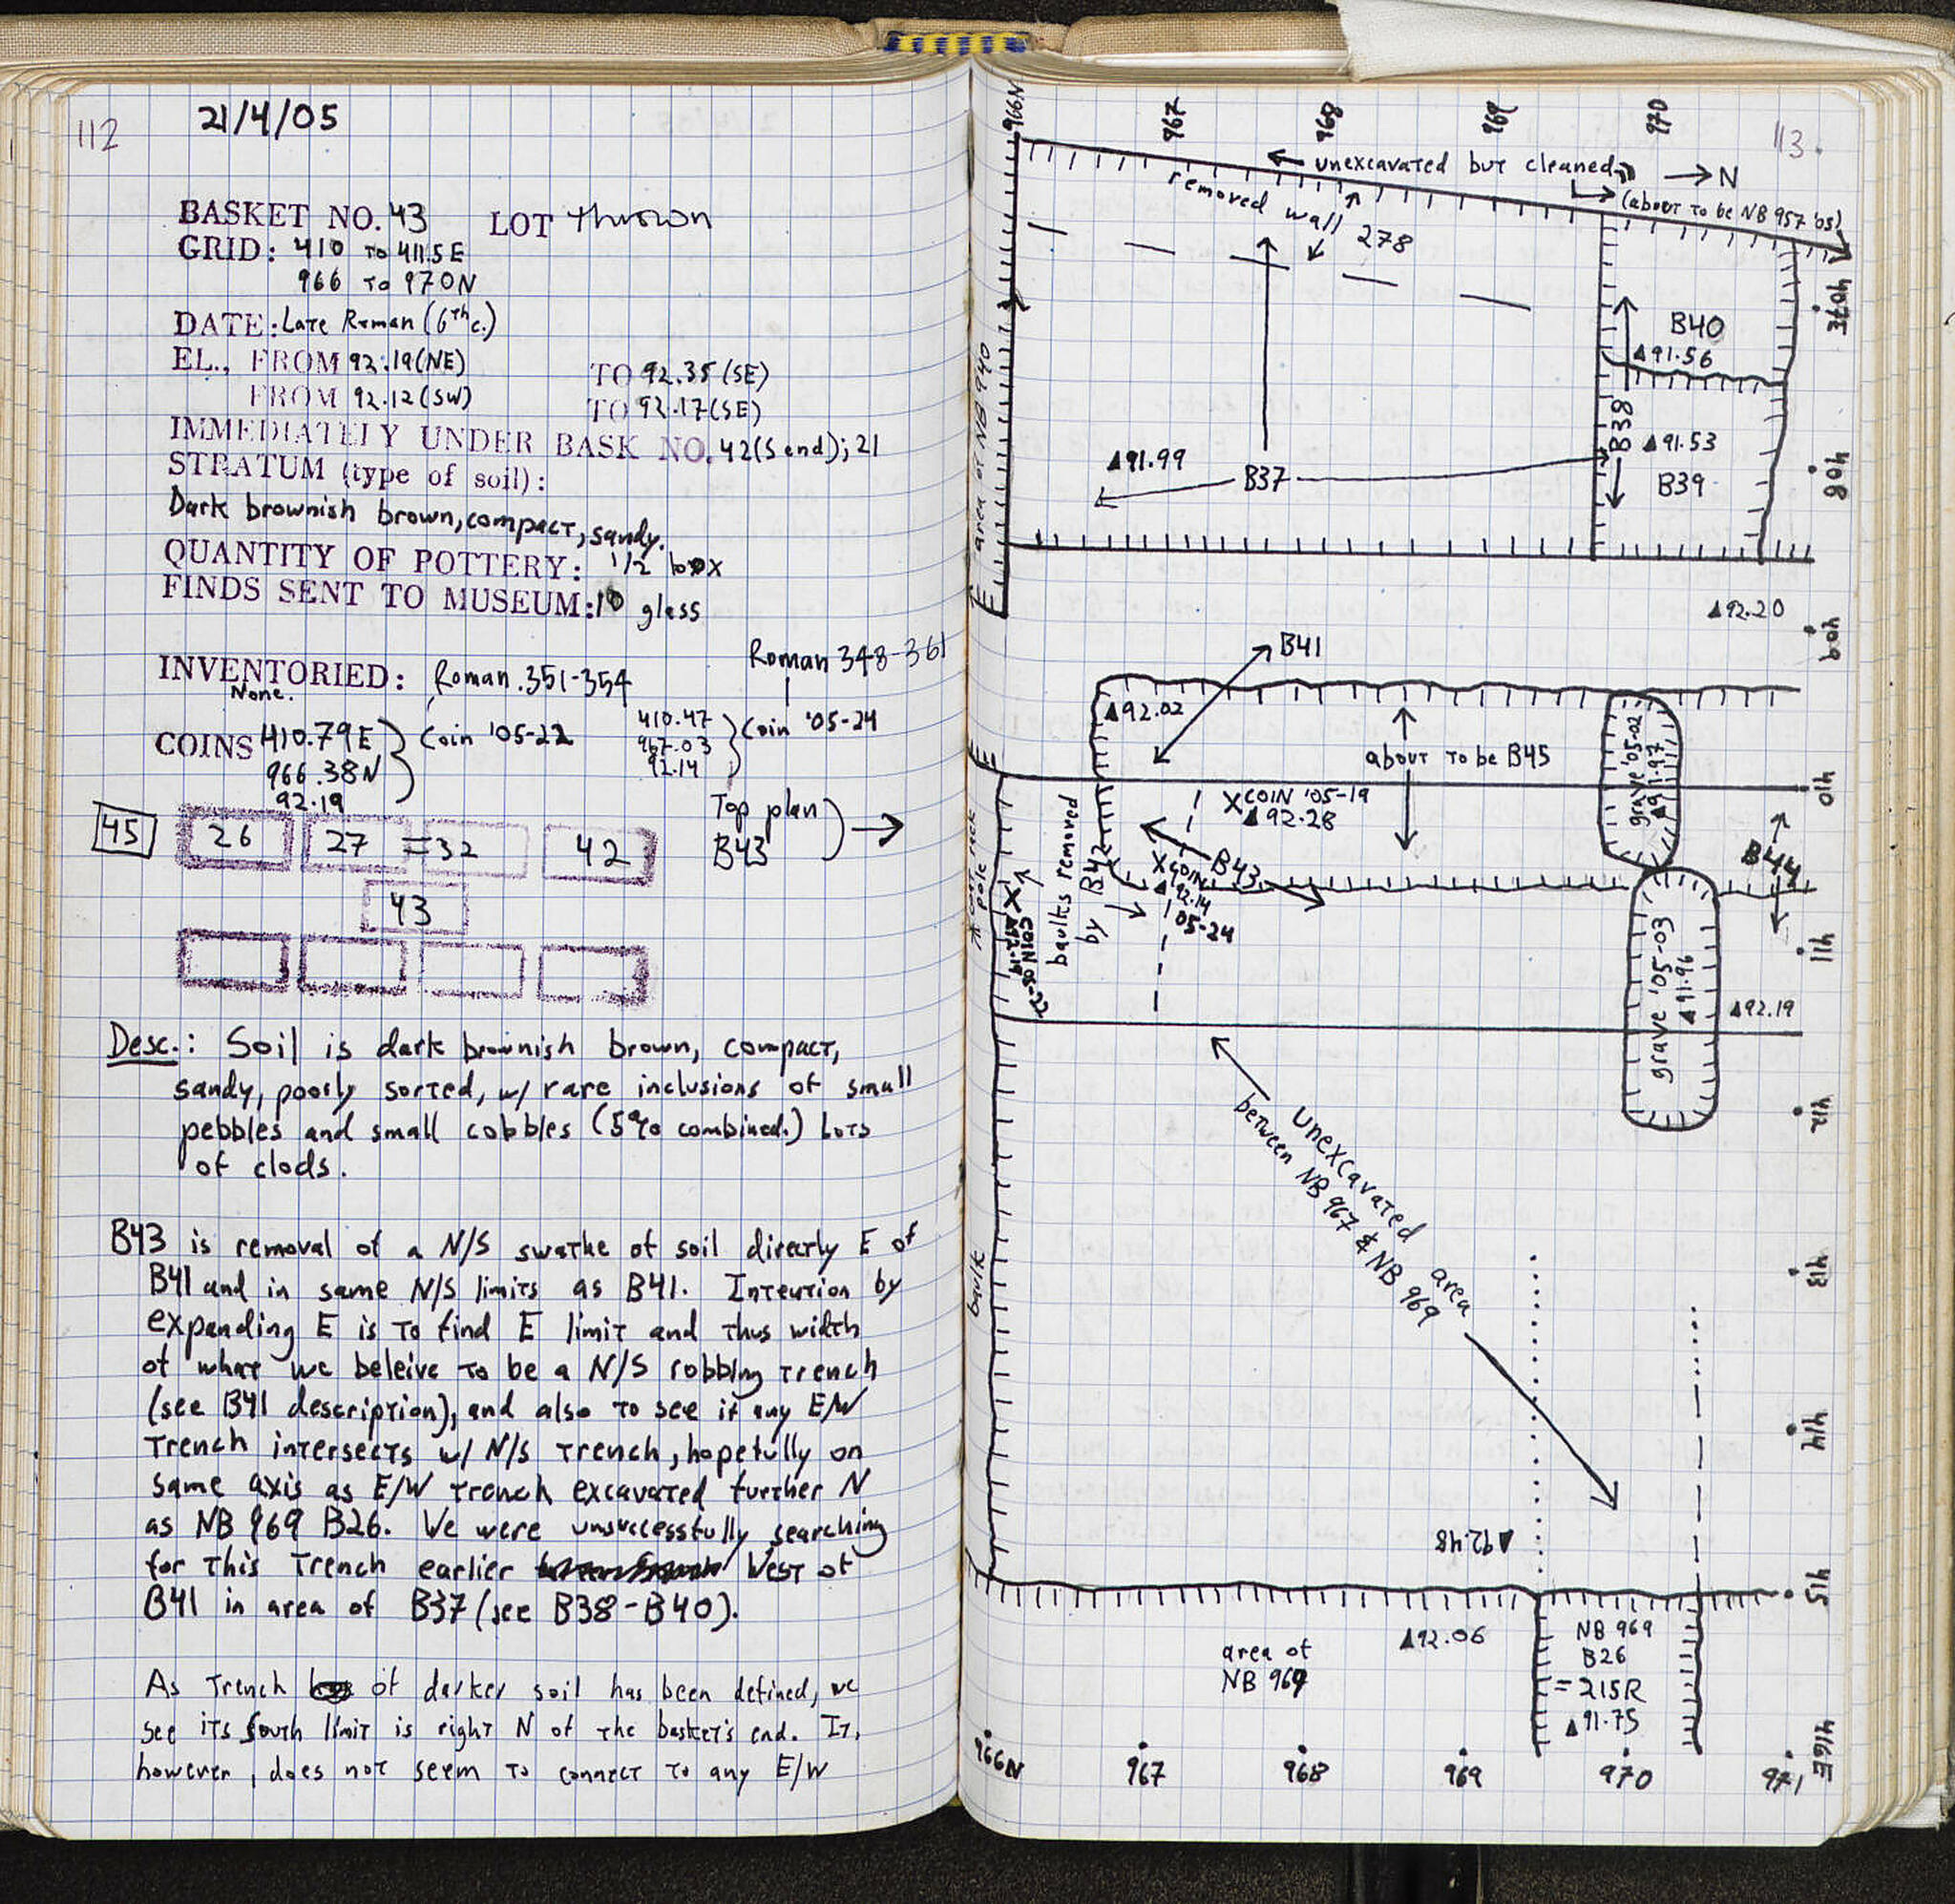 112
21/4/05
BASKET NO. 43 LOT Thrown
GRID: 410 to 411.5 E
966 to 970N
DATE: Late Roman (6th c.)
EL., FROM 92.19 (NE) TO 92.35 (SE)
FROM 92.12 (SW) TO 92.17 (SE)
IMMEDIATELY UNDER BASK NO. 42 (S end); 21
STRATUM (type of soil):
Dark brownish brown, compact, sandy.
QUANTITY OF POTTERY: 1/2 box
FINDS SENT TO MUSEUM: 10 glass
INVENTORIED: Roman 351-354 Roman 348-361
None.
COINS 410.79E Coin '05-22 410.47 Coin '05-24
966.38N 967.03
92.19 92.14
45 26 27 = 32 42 Top plan
B43
43
Desc.: Soil is dark brownish brown, compact,
sandy, poorly sorted, w/ rare inclusions of small
pebbles and small cobbles (5% combined.) Lots
of clods.
B43 is removal of a N/S swathe of soil directly E of
B41 and in same N/S limits as B41. Intention by
expanding E is to find E limit and thus width
of what we beleive to be a N/S robbing trench
(see B41 description), and also to see if any E/W
trench intersects w/ N/S trench, hopefully on
same axis as E/W trench excavated further N
as NB 969 B26. We were unsuccessfully searching
for this trench earlier West of
B41 in area of B37 (see B38-B40).
As trench of darker soil has been defined, we
see its south limit is right N of the basket's end. It,
however, does not seem to connect to any E/W
113.
966N 967 968 969 970
unexcavated but cleaned → N
(about to be NB 957 '05)
removed wall 278
407E
B40
91.56
B38
91.53
B39
91.99
B37
408
E area of NB 940
92.20
409
B41
92.02
about to be B45
grave '05-02
91.97
E
410
X COIN '05-19
92.28
B43
B44
X COIN
92.14
'05-24
baulks removed
by B42
X COIN '05-22
92.19
411
grave '05-03
91.96
92.19
412
unexcavated area
between NB 967 & NB 969
413
baulk
414
92.48
415
area of
NB 969
92.06
NB 969
B26
= 215R
91.75
416E
966N 967 968 969 970 971